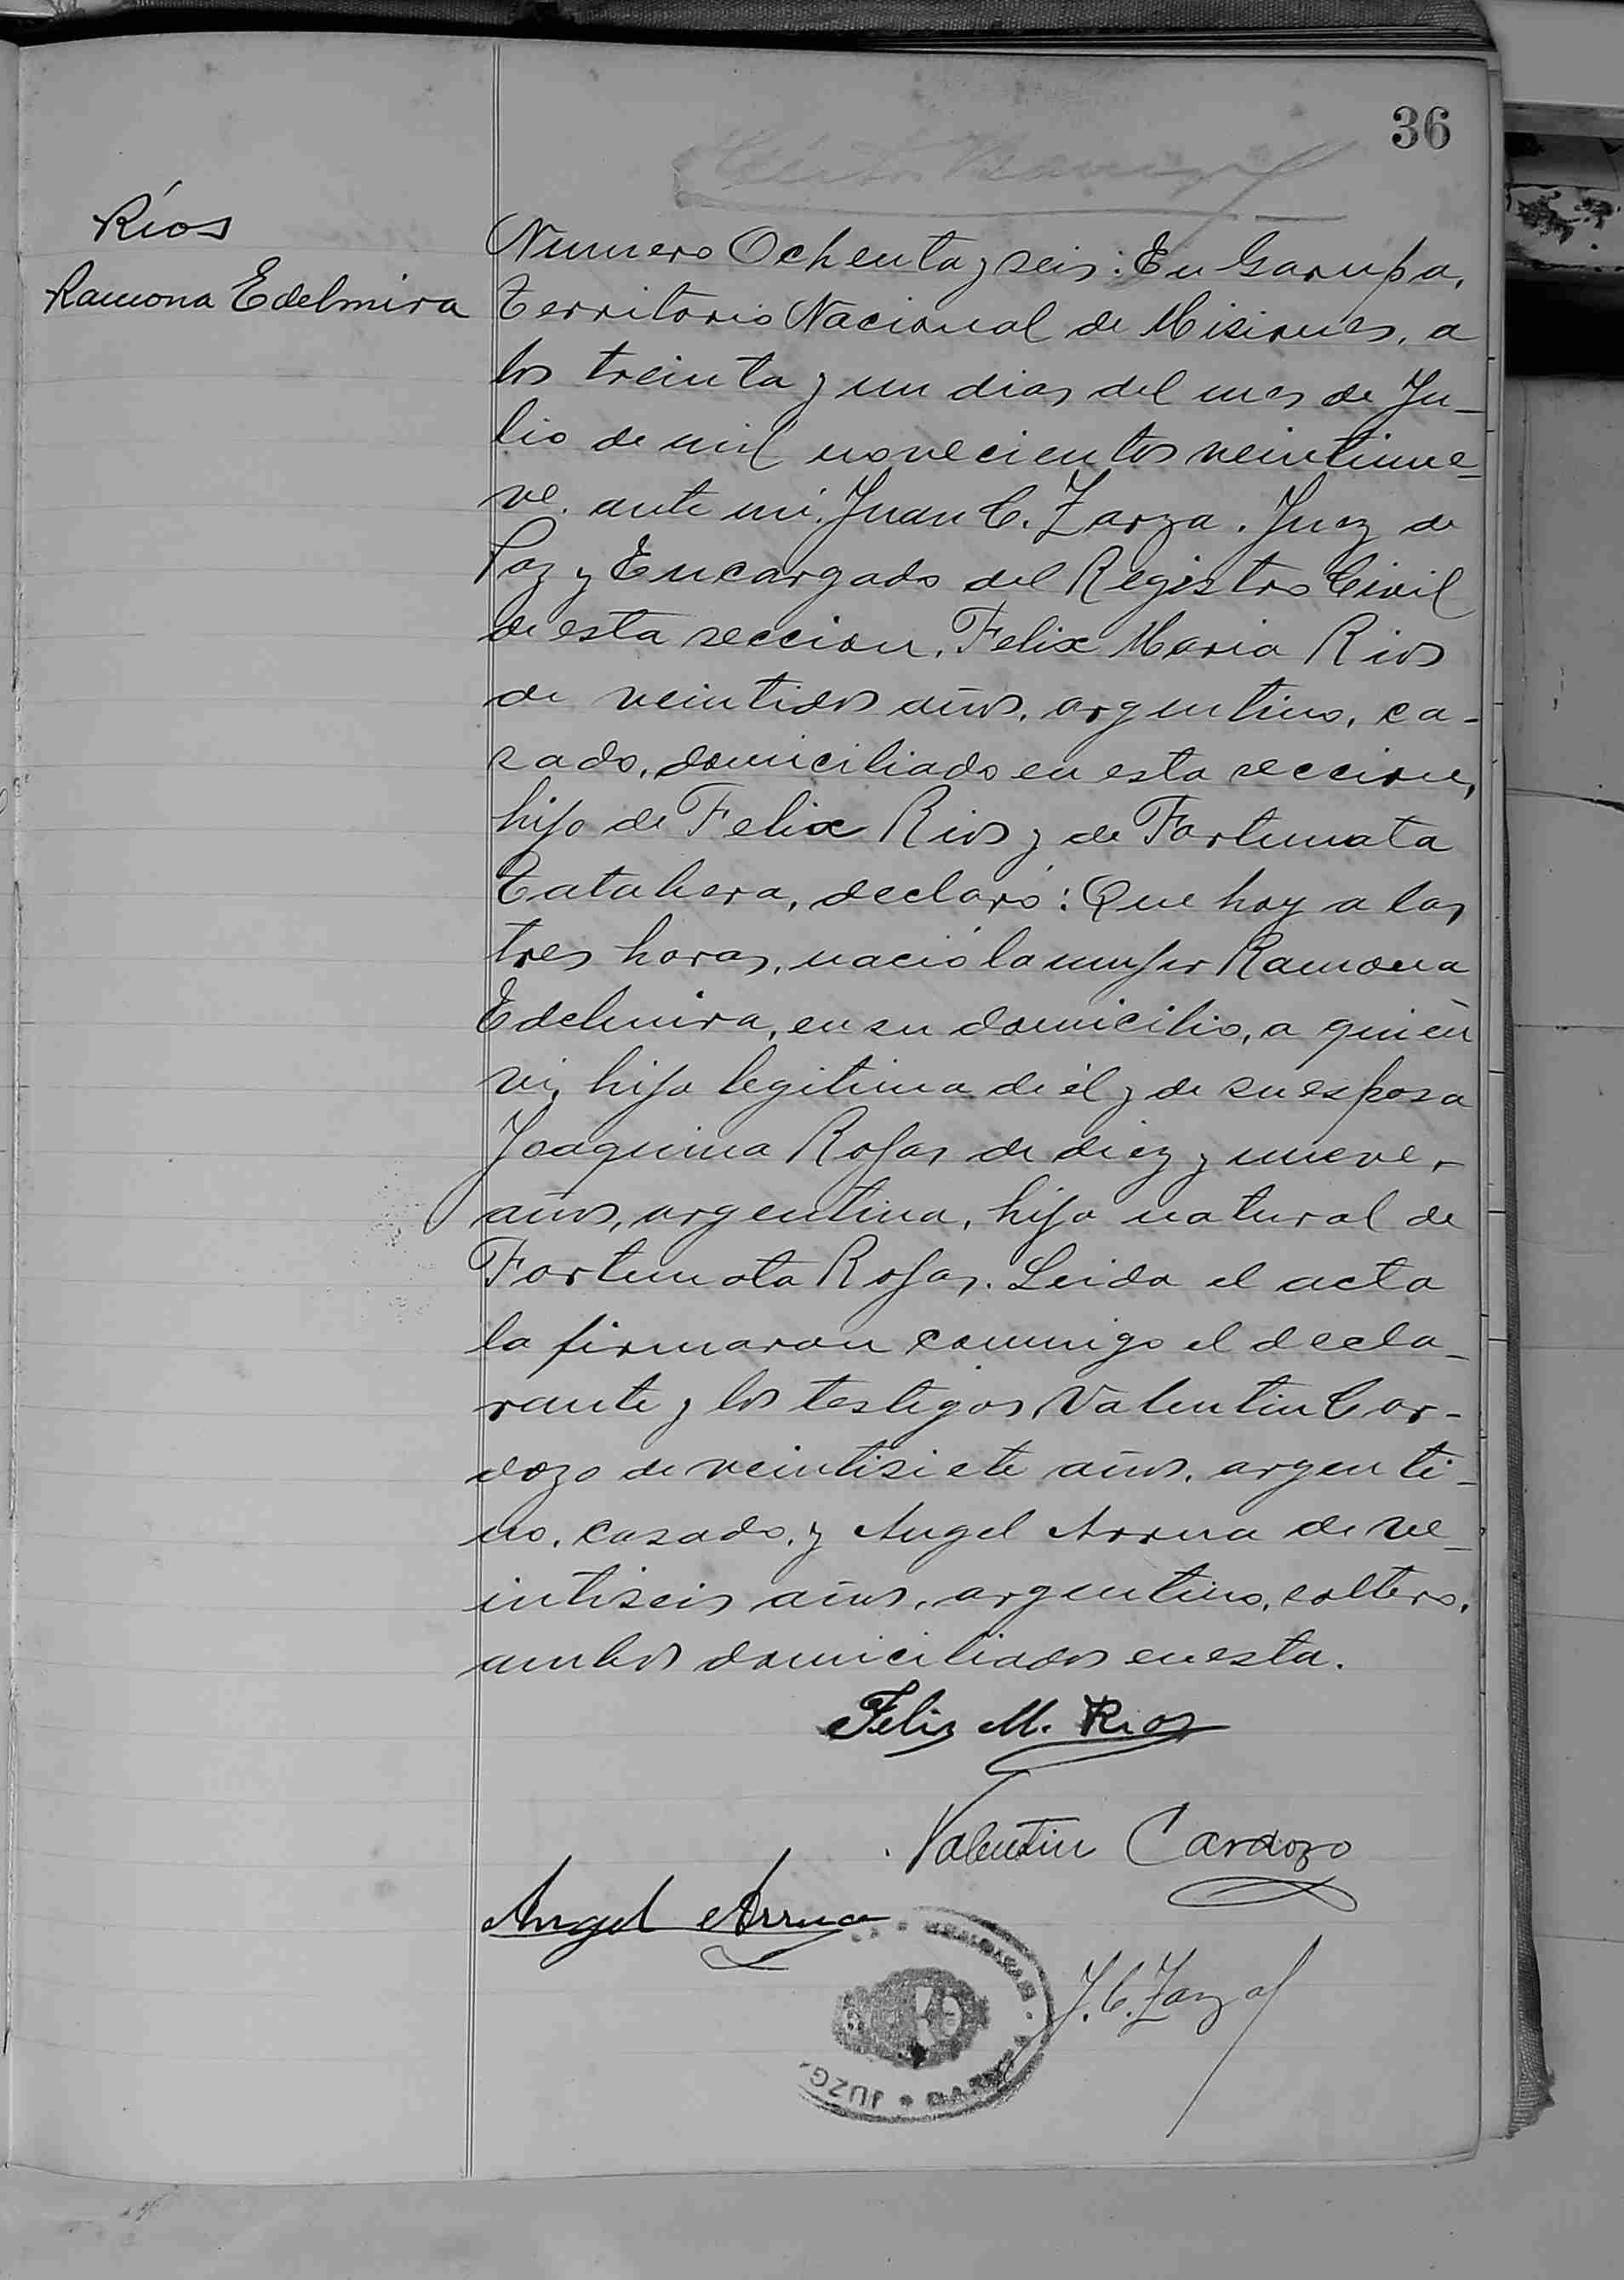 36
Ríos
Ramona Edelmira
Numero Ochenta y seis: En Garupa,
Territorio Nacional de Misiones, a
los treinta y un dias del mes de Ju-
lio de mil novecientos veintinue-
ve. ante mi, Juan C. Zarza. Juez de
Paz y Encargado del Registro Civil
de esta seccion, Felix Maria Rios
de veintidos años, argentino, ca-
sado, domiciliado en esta seccion,
hijo de Felix Rios y de Fortunata
declaró: Que hoy a las
tres horas, nació la mujer Ramona
Edelmira, en su domicilio, a quién
vi, hija legitima de él y de su esposa
Joaquina Rojas de diez y nueve
años, argentina, hija natural de
Fortunata Rojas. Leida el acta
la firmaron conmigo el decla-
rante y los testigos Valentin Car-
dozo de veintisiete años, argenti-
no, casado, y Angel Arrua de ve-
intiseis años, argentino, soltero,
ambos domiciliados en esta.
Felis M. Rios
Valentin Cardozo
Angel Arrua
J. C. Zarza
JUZG